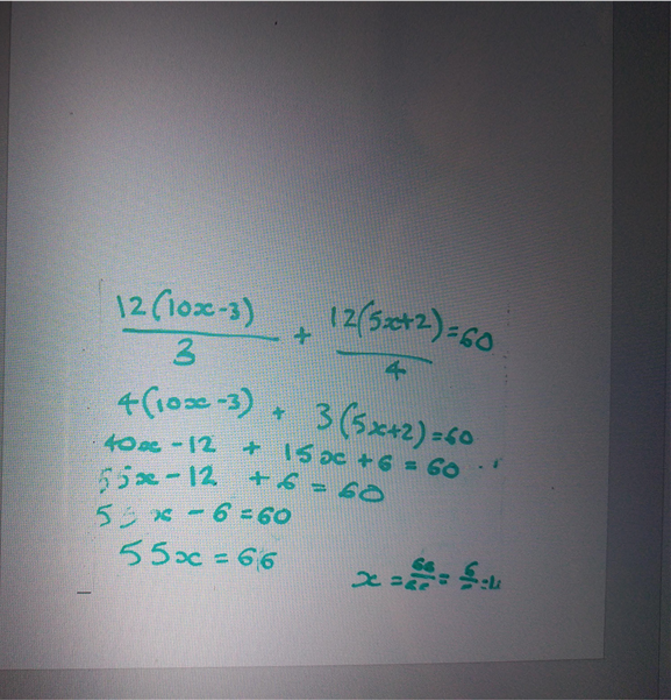 12(10x-3)/3 + 12(5x+2)/4 = 60
4(10x-3) + 3(5x+2) = 60
40x - 12 + 15x + 6 = 60
55x - 12 + 6 = 60
55x - 6 = 60
55x = 66
x = 66/55 = 6/